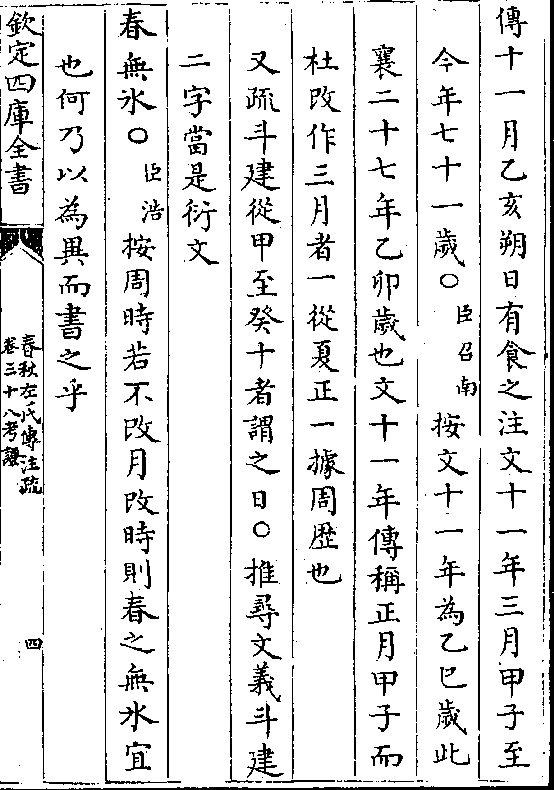 傳十一月乙亥朔日有食之注文十一年三月甲子至
今年七十一歲○臣召南按文十一年為乙巳歲此
襄二十七年乙卯歲也文十一年傳稱正月甲子而
杜改作三月者一從夏正一據周歴也
又疏斗建從甲至癸十者謂之日○推尋文義斗建
二字當是衍文
春無氷○臣浩按周時若不改月改時則春之無氷宜
也何乃以為異而書之乎
欽定四庫全書
春秋左氏傳注疏
卷三十八考證
四